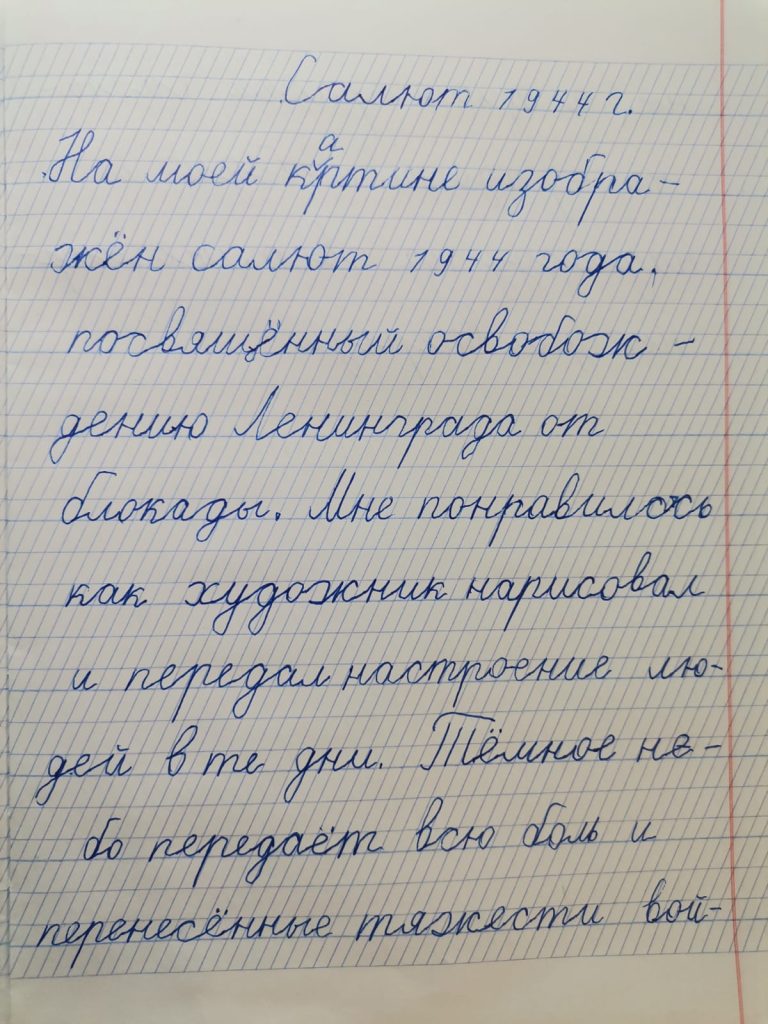 Салют 1944 г.
На моей картине изобра-
жён салют 1944 года,
посвящённый освобож-
дению Ленинграда от
блокады. Мне понравилось
как художник нарисовал
и передал настроение лю-
дей в те дни. Тёмное не-
бо передаёт всю боль и
перенесённые тяжести вой-